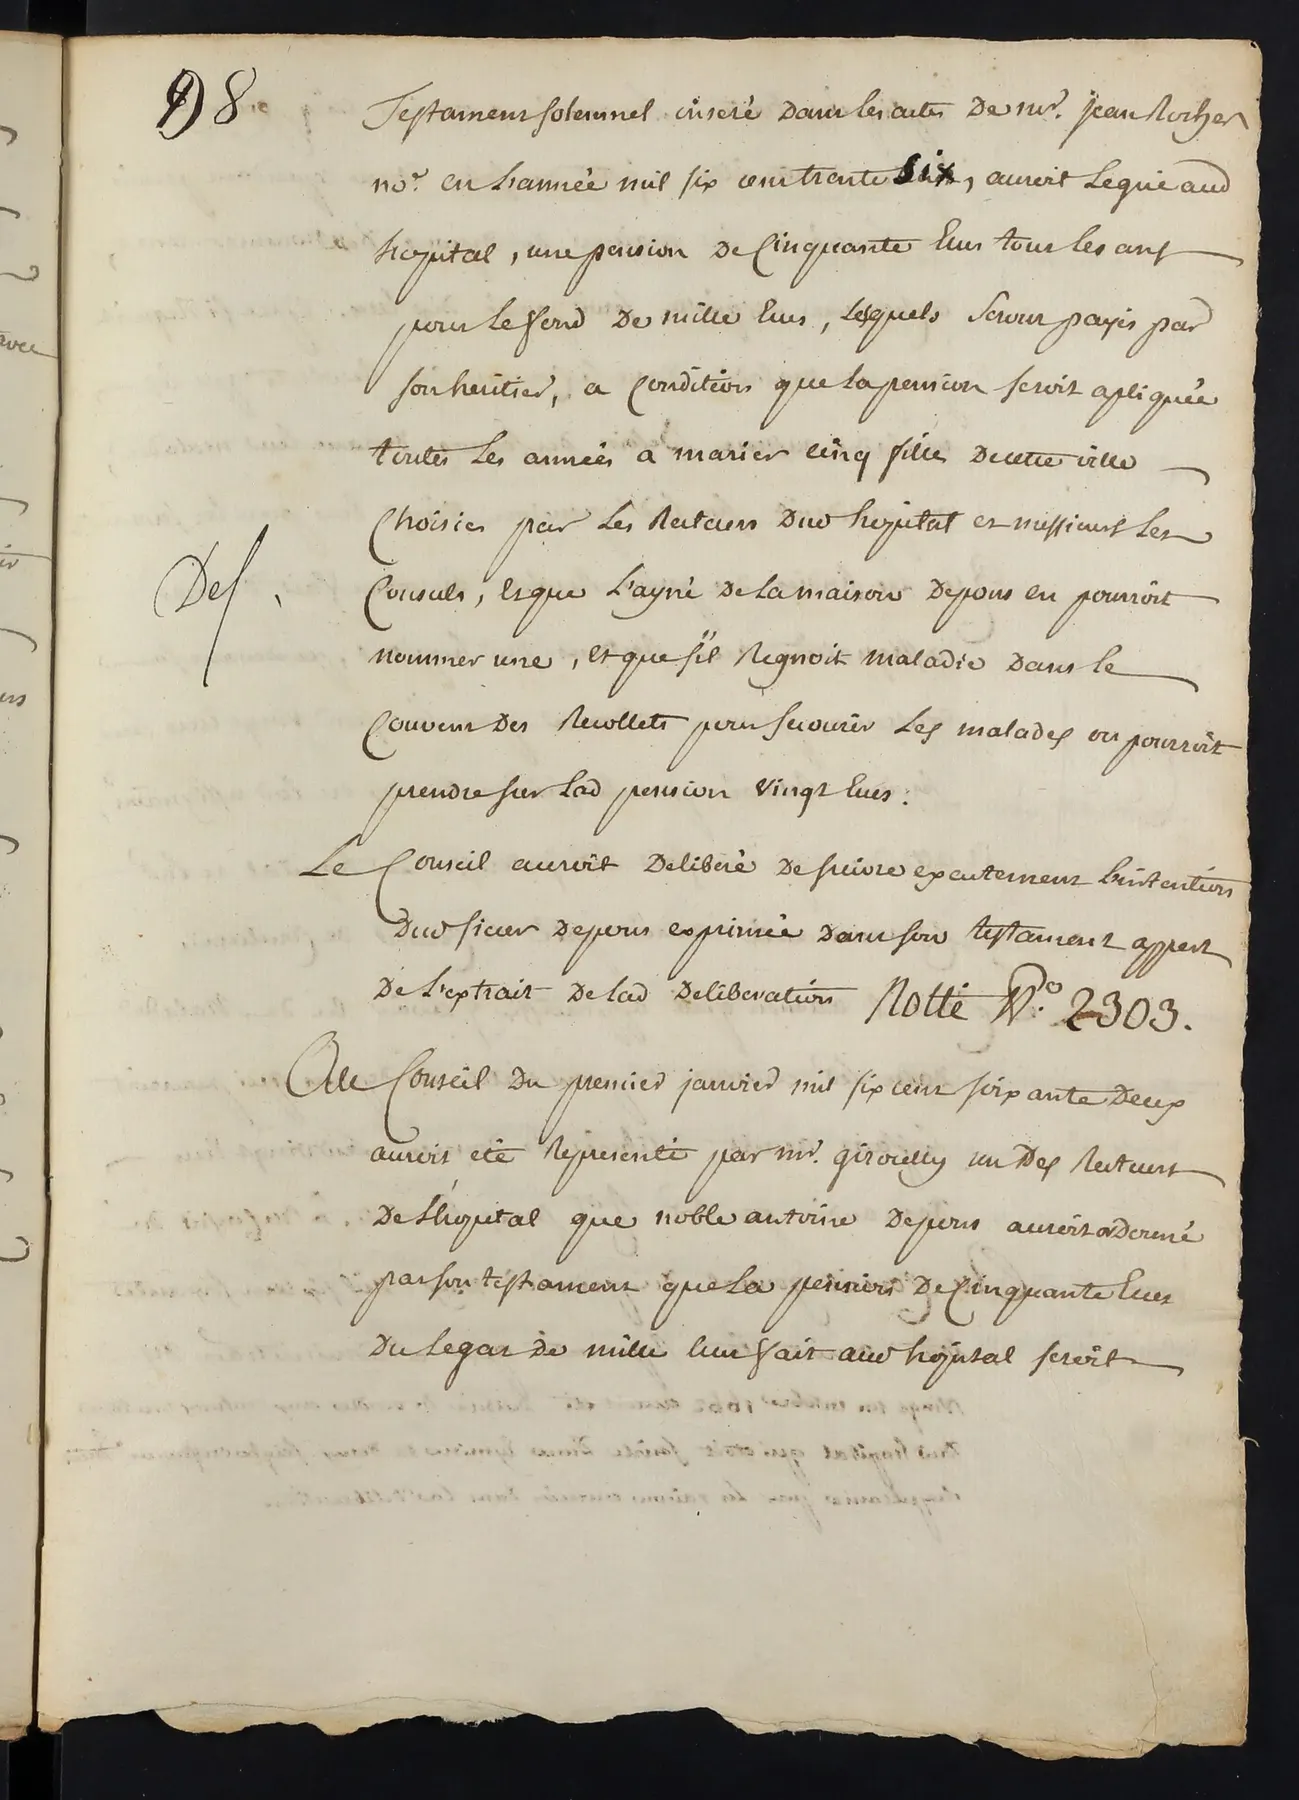 98
Testament solemnel inseré dans les actes De mr. jean Rocher
nore. en L'année mil six cent trente six, auroit Legué aud
hopital, une pension De Cinquante Livs tous les ans
pour Le fond De mille Livs, Lesquels Seront payés par
son heritier, a Condition que La pension seroit apliquée
toutes Les années a marier cinq filles De cette ville
Choisies par Les Recteurs Dud hopital et messieurs Les
Consuls, Et que L'ayné De La maison Depons en pourroit
Del.
nommer une, Et que s'il Regnoit maladie Dans Le
Couvent Des Recollets pour secourir Les malades on pourroit
prendre sur Lad pension vingt Livs.
Le Conseil auroit Deliberé De suivre exactement L'intention
Dud sieur Depons exprimée Dans son testament appert
De L'extrait De Lad Deliberation Notté No. 2303.
Au Conseil Du premier janvier mil six cent soixante Deux
auroit eté Representé par mr. giroully un Des Recteurs
De L'hopital que noble antoine Depons auroit ordonné
par son testament que La pension De Cinquante Livs
Du Legat De mille Livs fait aud hopital seroit